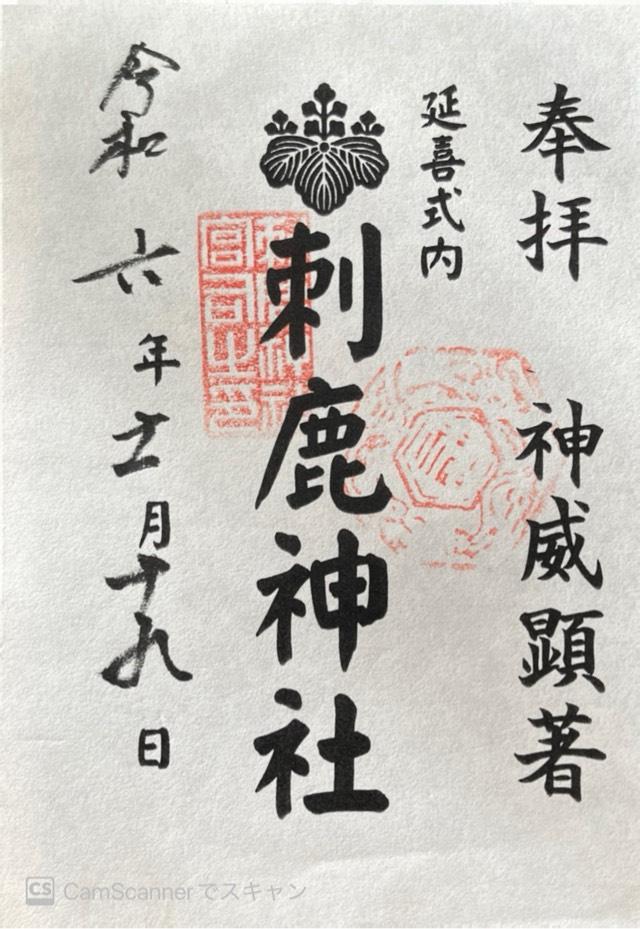 奉拝　神威顕著
延喜式内
刺鹿神社
令和六年十一月十九日
CS CamScannerでスキャン